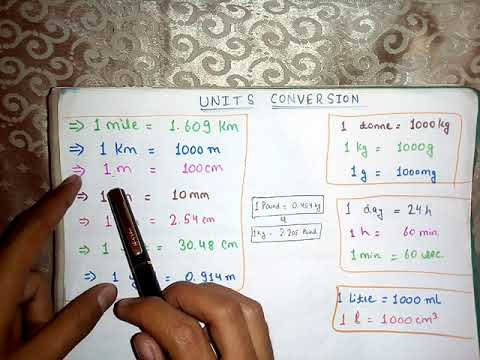 UNITS CONVERSION
⇒ 1 mile = 1.609 Km
⇒ 1 Km = 1000 m
⇒ 1 m = 100 cm
⇒ 1 m = 10 mm
⇒ 1 = 2.54 cm
⇒ 1 = 30.48 cm
⇒ 1 y = 0.914 m
1 Pound = 0.454 kg
1 kg = 2.205 Pound
1 tonne = 1000 kg
1 kg = 1000 g
1 g = 1000 mg
1 day = 24 h
1 h = 60 min.
1 min = 60 sec.
1 litre = 1000 ml
1 l = 1000 cm³